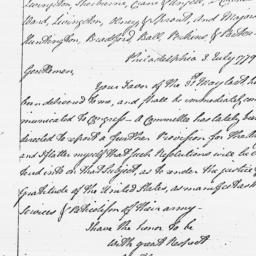 Livingston, Sherburne, Cane & Angell,
Ward, Livingston, Henry & Sprout, And Majors
Huntington, Bradford Ball, Perkins &
Philadelphia 3. July 1779
Gentlemen,
Your Favor of the 31st May last has
been delivered to me, and shall be immediately com
municated to Congress — A Committee has lately been
directed to report a further Provision for the
and I flatter myself that such Resolutions will be
into on that Subject, as to render the justice &
gratitude of the United States, as manifest as
Services & Patriotism of their army—
I have the honor to be
with great Respect